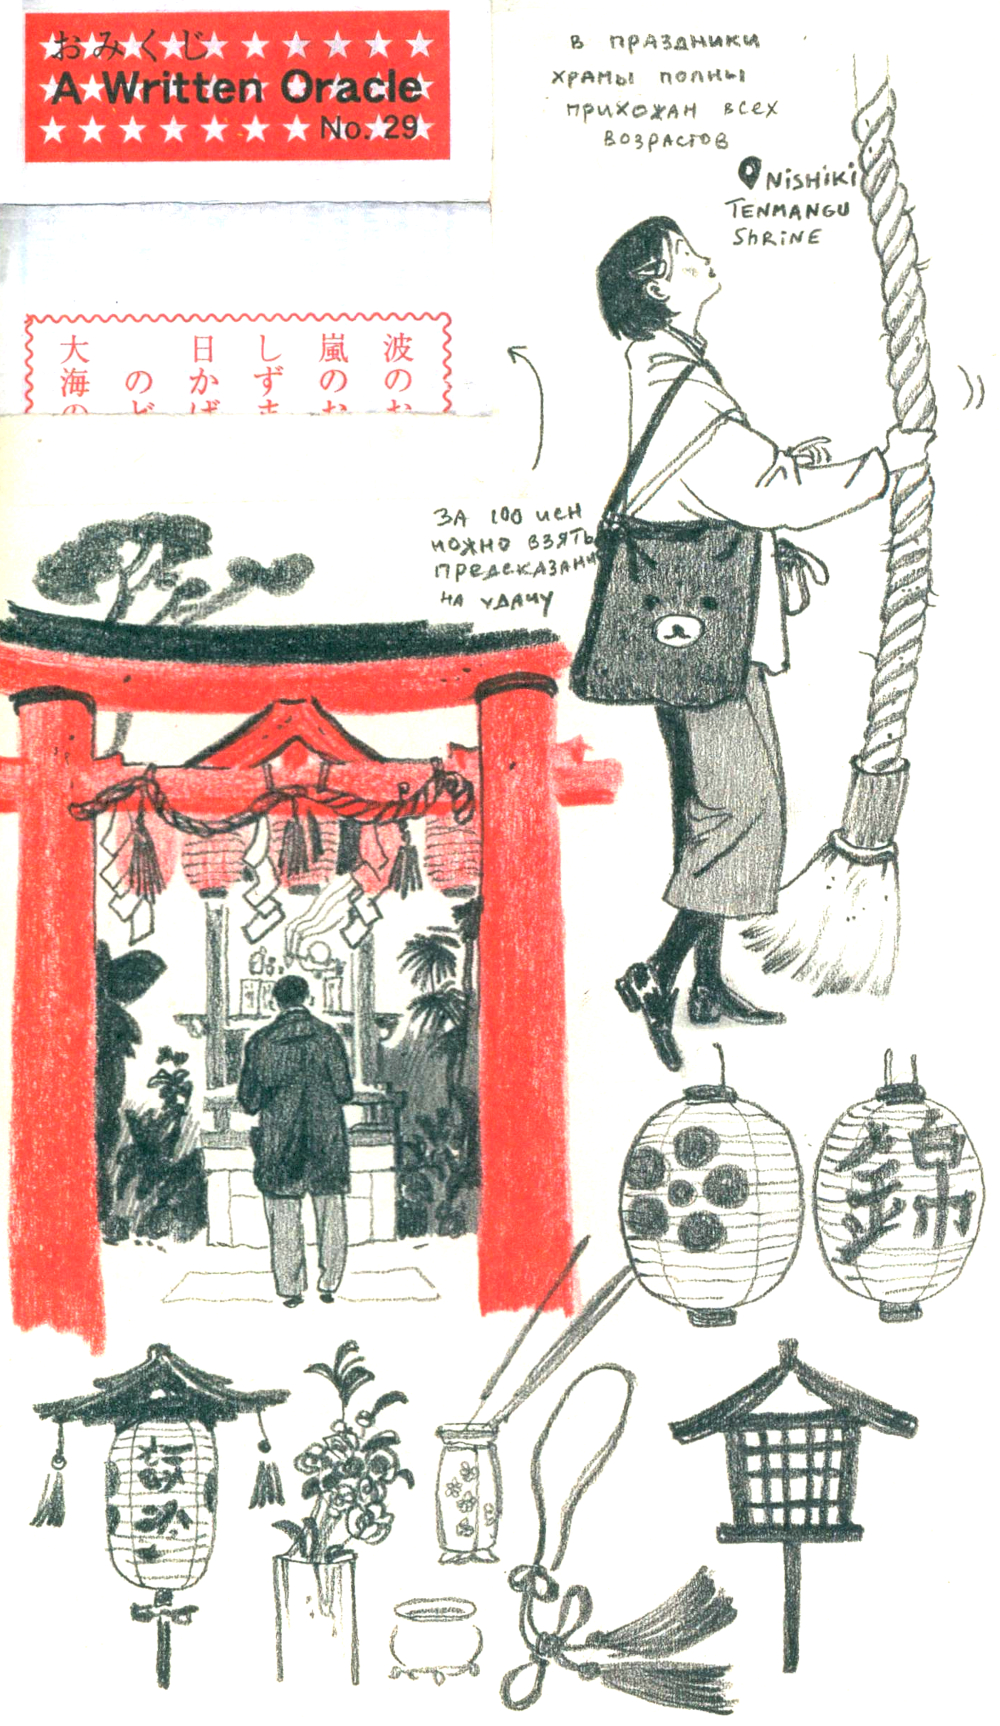 おみくじ
A Written Oracle
No. 29
波のお
嵐のお
しずま
日かげ
のど
大海の
В ПРАЗДНИКИ
ХРАМЫ ПОЛНЫ
ПРИХОЖАН ВСЕХ
ВОЗРАСТОВ
NiSHiKi
TENMANGU
ShRiNE
ЗА 100 ИЕН
МОЖНО ВЗЯТЬ
ПРЕДСКАЗАНИ
НА УДАЧУ
錦